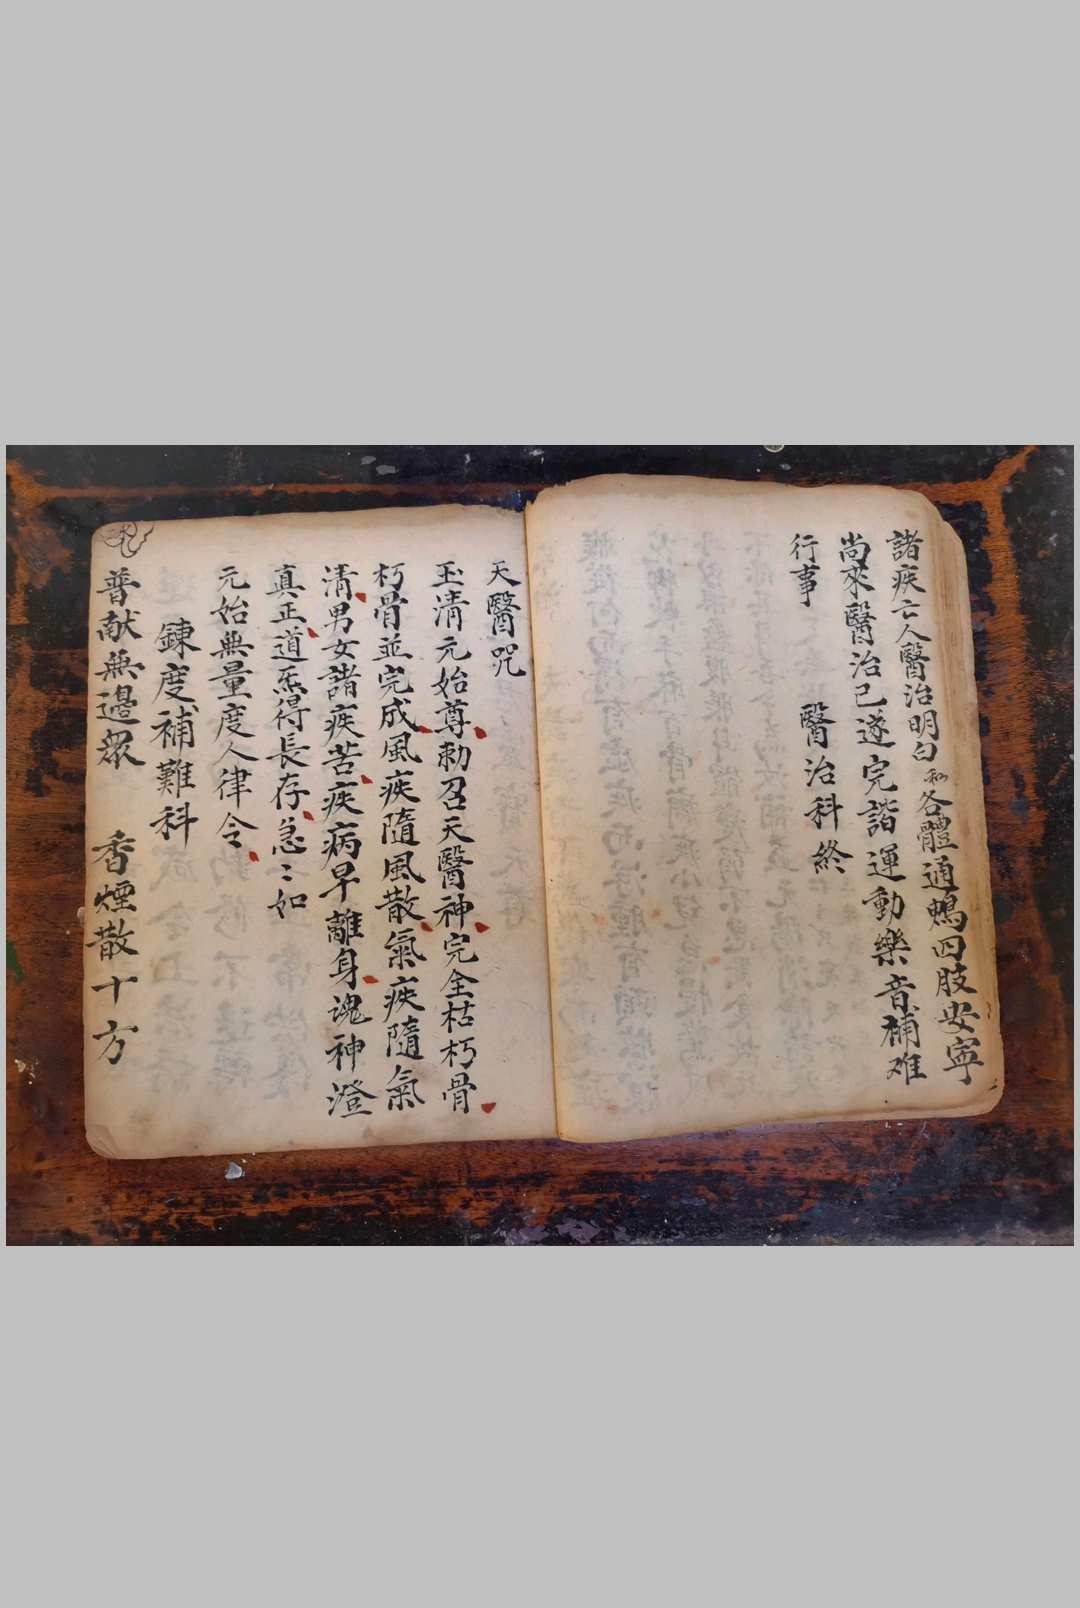 諸疾亡人醫治明白和各體通鴨四肢安寧
尚來醫治已遂完諧運動樂音補难
行事
醫治科終
天醫咒
玉清元始尊勅召天醫神完全枯朽骨
朽骨並完成風疾隨風散氣疾隨氣
清男女諸疾苦疾病早離身魂神澄
真正道炁得長存急〻如
元始無量度人律令
鍊度補難科
普献無邊眾 香煙散十方